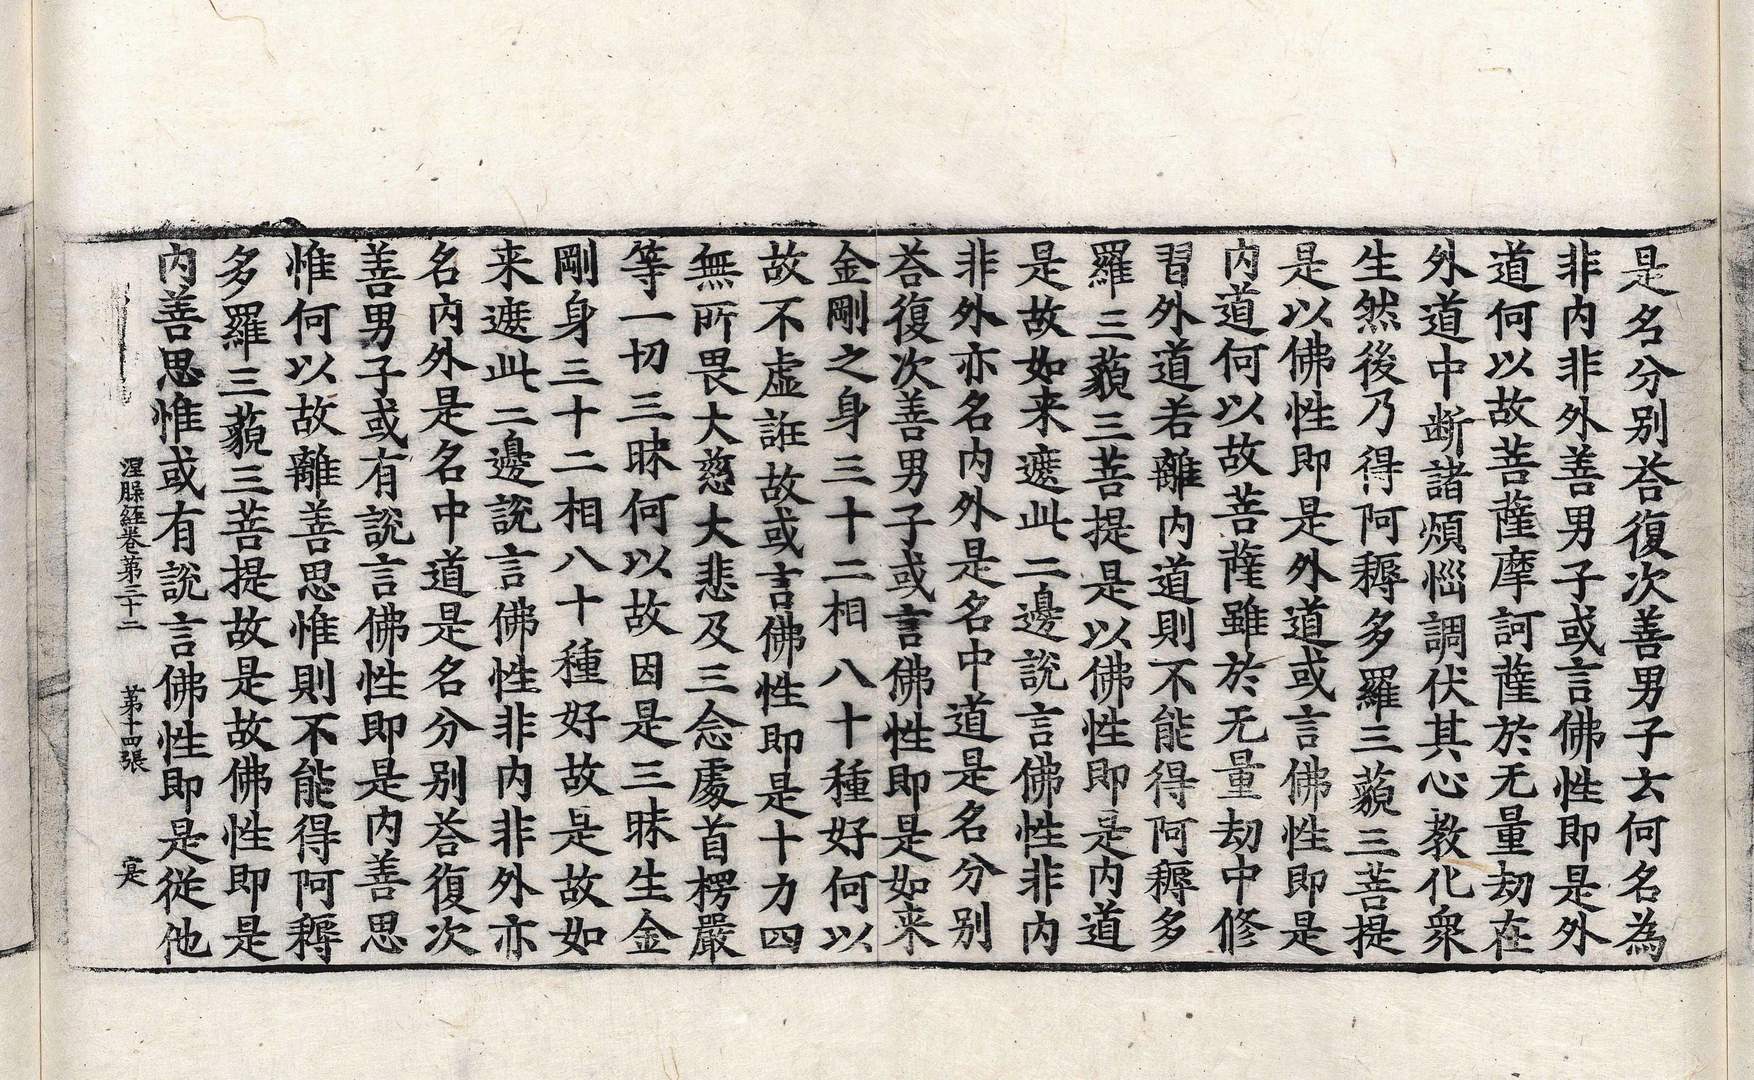 是名分别荅復次善男子云何名為
非内非外善男子或言佛性即是外
道何以故菩薩摩訶薩於无量劫在
外道中断諸煩惱調伏其心教化衆
生然後乃得阿耨多羅三藐三菩提
是以佛性即是外道或言佛性即是
内道何以故菩薩雖於无量劫中修
習外道若離内道則不能得阿耨多
羅三藐三菩提是以佛性即是内道
是故如来遮此二邊說言佛性非内
非外亦名内外是名中道是名分别
荅復次善男子或言佛性即是如来
金剛之身三十二相八十種好何以
故不虚誑故或言佛性即是十力四
無所畏大慈大悲及三念處首楞嚴
等一切三昧何以故因是三昧生金
剛身三十二相八十種好故是故如
来遮此二邊說言佛性非内非外亦
名内外是名中道是名分别荅復次
善男子或有說言佛性即是内善思
惟何以故離善思惟則不能得阿耨
多羅三藐三菩提故是故佛性即是
内善思惟或有說言佛性即是從他
涅槃經卷第三十二 第十四張 寔